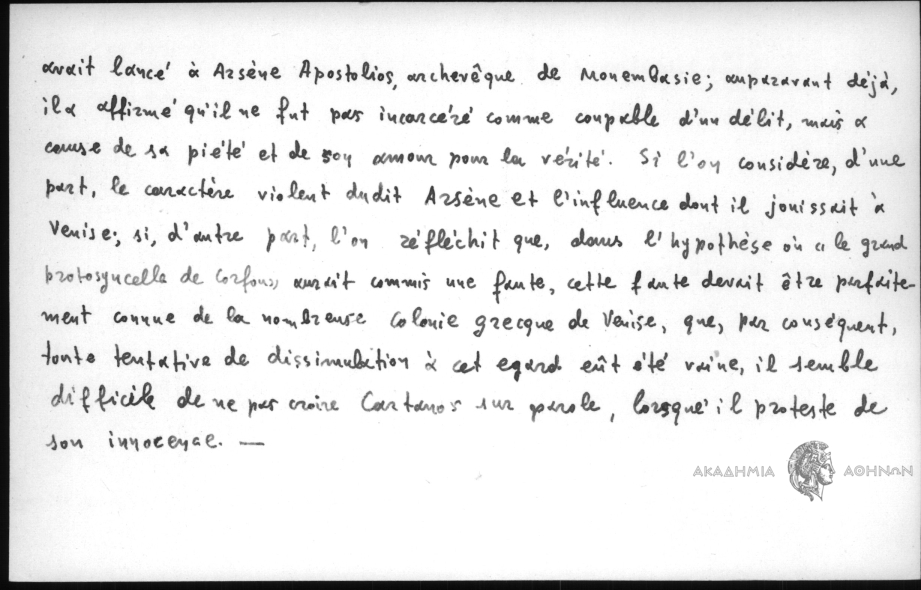 avait lancé à Arsène Apostolios, archevêque de Monembasie; auparavant déjà,
il a affirmé qu'il ne fut pas incarcéré comme coupable d'un délit, mais a
cause de sa piété et de son amour pour la vérité. Si l'on considère, d'une
part, le caractère violent dudit Arsène et l'influence dont il jouissait à
Venise; si, d'autre part, l'on réfléchit que, dans l'hypothèse où « le grand
protosyncelle de Corfou» aurait commis une faute, cette faute devait être parfaite-
ment connue de la nombreuse colonie grecque de Venise, que, par conséquent,
toute tentative de dissimulation à cet egard eût été vaine, il semble
difficile de ne pas croire Cartanos sur parole, lorsqu'il proteste de
son innocence. —
ΑΚΑΔΗΜΙΑ ΑΘΗΝΩΝ